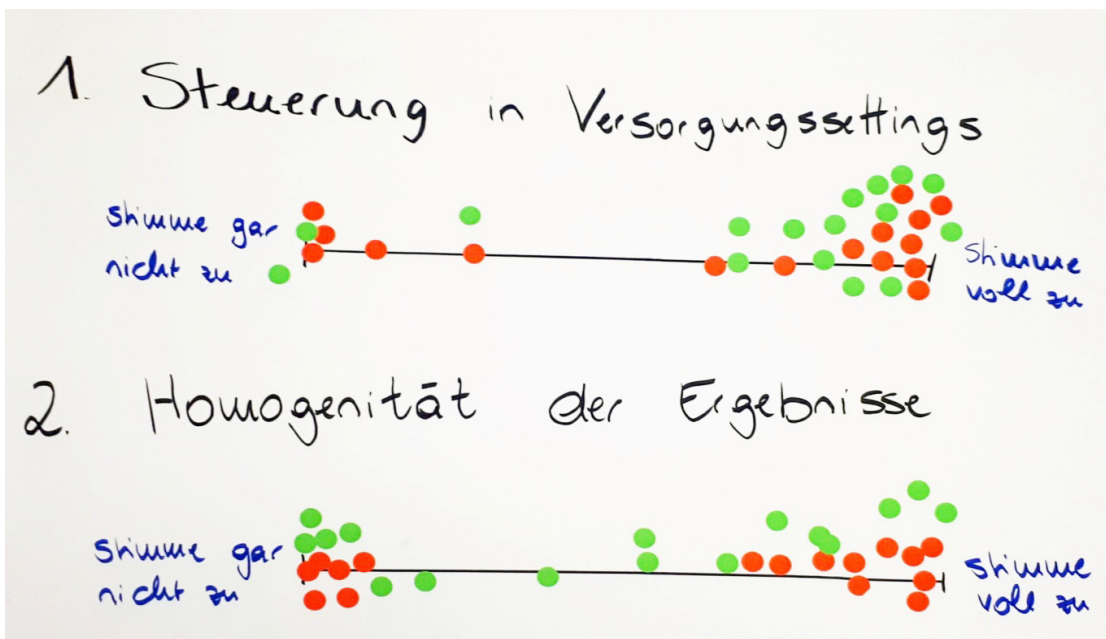 1. Steuerung in Versorgungssettings
stimme gar
nicht zu
stimme
voll zu
2. Homogenität der Ergebnisse
stimme gar
nicht zu
stimme
voll zu